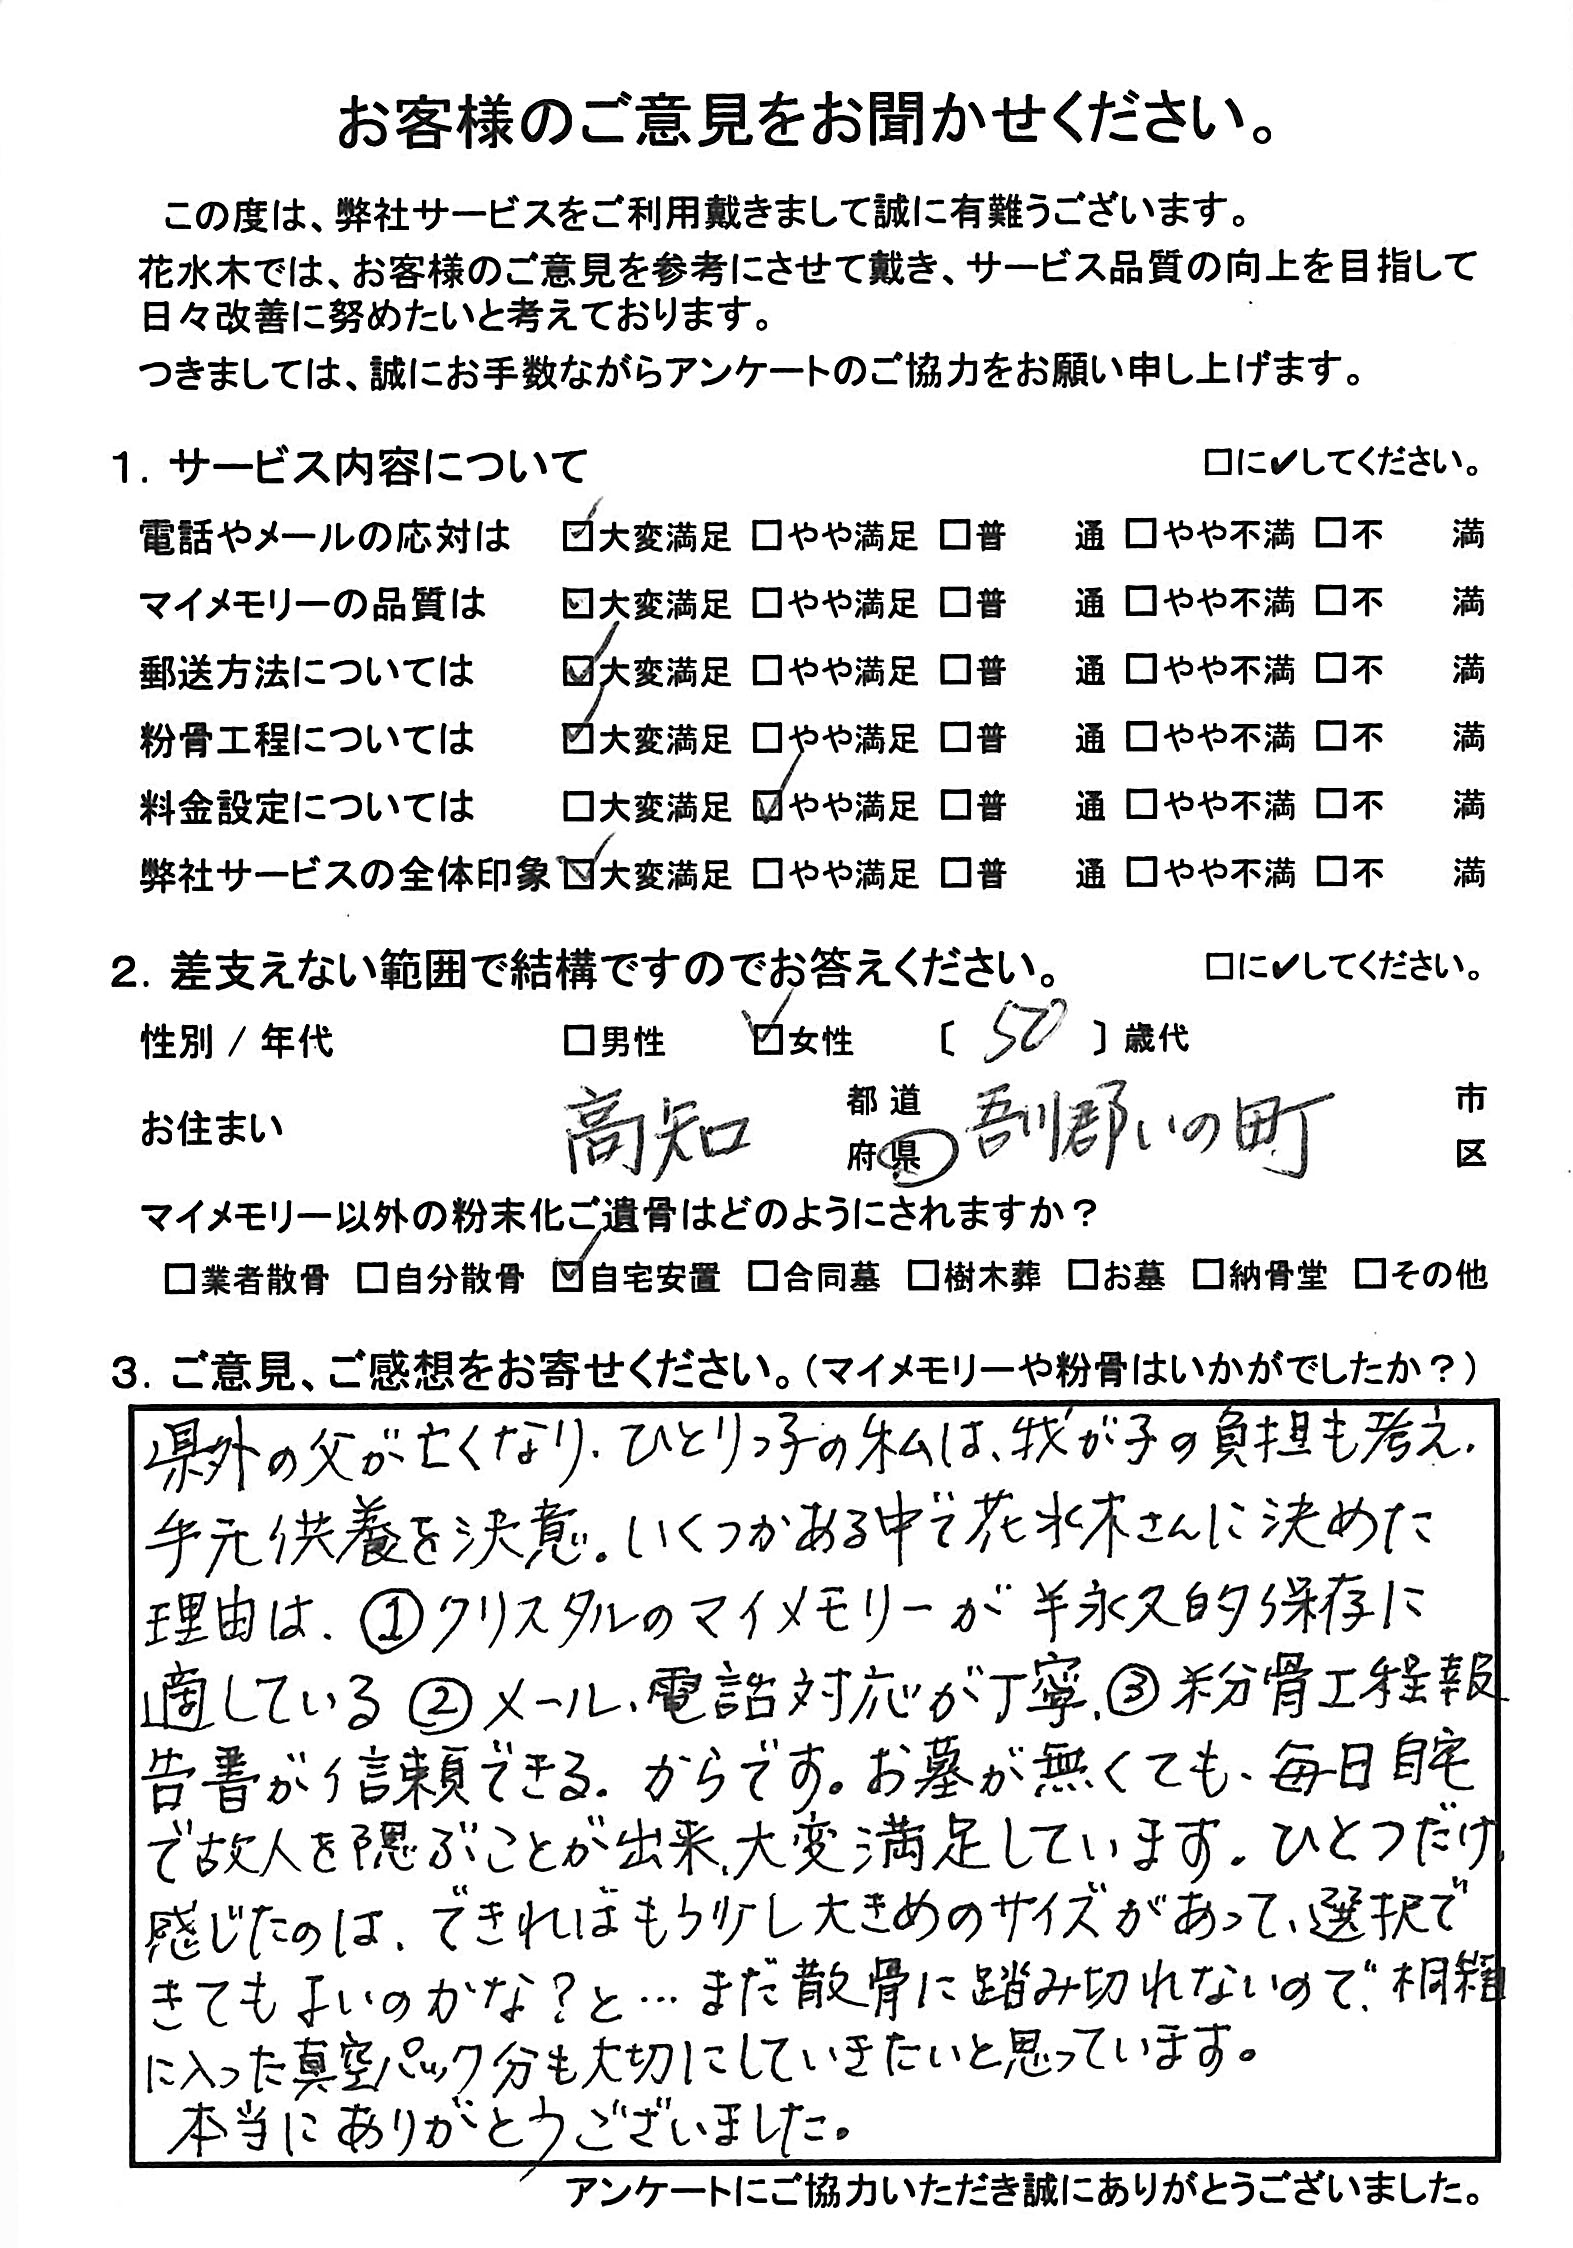 お客様のご意見をお聞かせください。
この度は、弊社サービスをご利用戴きまして誠に有難うございます。
花水木では、お客様のご意見を参考にさせて戴き、サービス品質の向上を目指して
日々改善に努めたいと考えております。
つきましては、誠にお手数ながらアンケートのご協力をお願い申し上げます。
1. サービス内容について □に✔してください。
電話やメールの応対は ☑大変満足 □やや満足 □普 通 □やや不満 □不 満
マイメモリーの品質は ☑大変満足 □やや満足 □普 通 □やや不満 □不 満
郵送方法については ☑大変満足 □やや満足 □普 通 □やや不満 □不 満
粉骨工程については ☑大変満足 □やや満足 □普 通 □やや不満 □不 満
料金設定については □大変満足 ☑やや満足 □普 通 □やや不満 □不 満
弊社サービスの全体印象 ☑大変満足 □やや満足 □普 通 □やや不満 □不 満
2. 差支えない範囲で結構ですのでお答えください。 □に✔してください。
性別 / 年代 □男性 ☑女性 〔 50 〕歳代
お住まい 高知 都道府県 吾川郡いの町 市区
マイメモリー以外の粉末化ご遺骨はどのようにされますか？
□業者散骨 □自分散骨 ☑自宅安置 □合同墓 □樹木葬 □お墓 □納骨堂 □その他
3. ご意見、ご感想をお寄せください。（マイメモリーや粉骨はいかがでしたか？）
県外の父が亡くなり、ひとりっ子の私は、我が子の負担も考え、
手元供養を決意。いくつかある中で花水木さんに決めた
理由は、①クリスタルのマイメモリーが半永久的保存に
適している ②メール、電話対応が丁寧、③粉骨工程報
告書が信頼できる。からです。お墓が無くても、毎日自宅
で故人を偲ぶことが出来、大変満足しています。ひとつだけ、
感じたのは、できればもう少し大きめのサイズがあって、選択で
きてもよいのかな？と…まだ散骨に踏み切れないので、桐箱
に入った真空パック分も大切にしていきたいと思っています。
本当にありがとうございました。
アンケートにご協力いただき誠にありがとうございました。